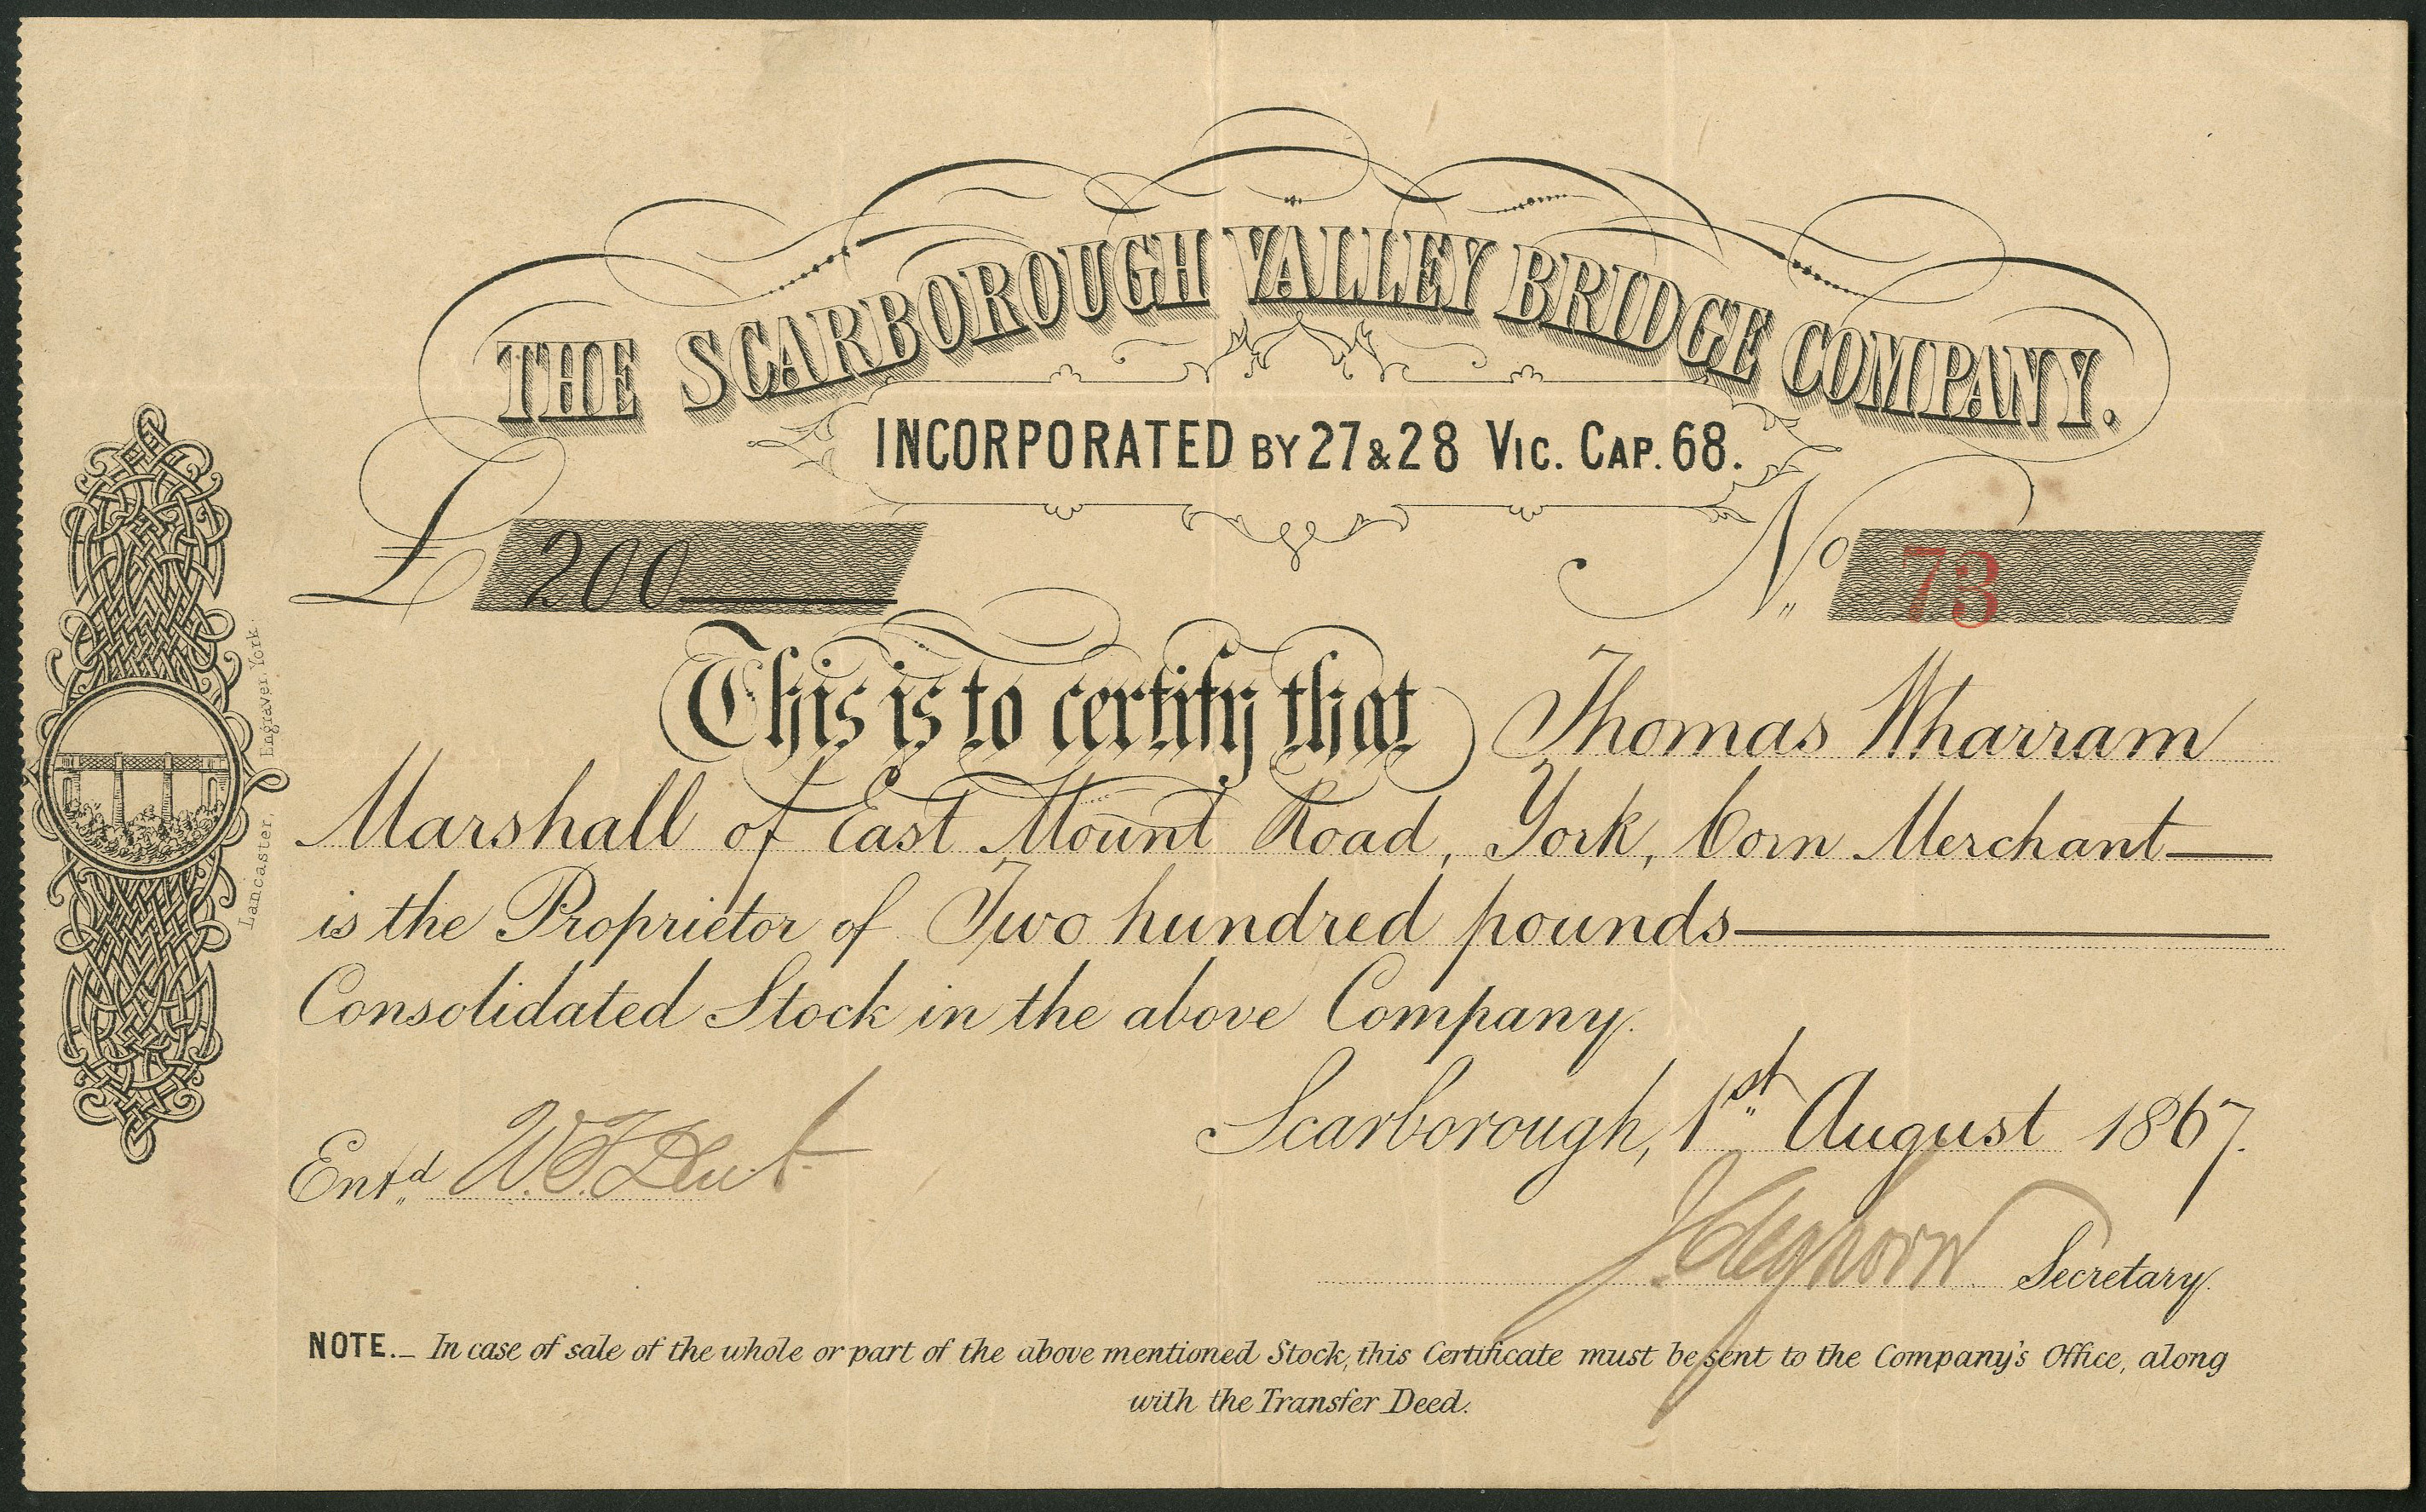 THE SCARBOROUGH VALLEY BRIDGE COMPANY.
INCORPORATED BY 27 & 28 VIC. CAP. 68.
£ 200
No 73
This is to certify that Thomas Wharram
Marshall of East Mount Road, York, Corn Merchant
is the Proprietor of Two hundred pounds
Consolidated Stock in the above Company.
Scarborough, 1st August 1867.
Entd W. F. Dent
J. Cleghorn Secretary.
NOTE.— In case of sale of the whole or part of the above mentioned Stock, this Certificate must be sent to the Company's Office, along
with the Transfer Deed.
Lancaster, Engraver York.